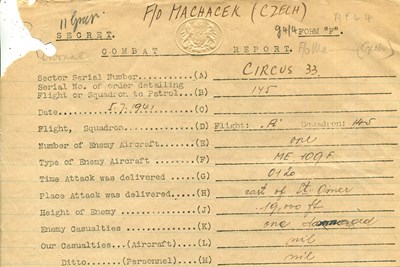 F/O MACHACEK (CZECH)
S E C R E T. 9414 FORM "F"
C O M B A T R E P O R T.
Sector Serial Number...........(A) CIRCUS 33.
Serial No. of order detailing
Flight or Squadron to Patrol...(B) 145
Date.....5.7.1941..............(C)
Flight, Squadron...............(D) Flight: 'A' Squadron: 145
Number of Enemy Aircraft.......(E) one
Type of Enemy Aircraft.........(F) ME 109F.
Time Attack was delivered .....(G)
Place Attack was delivered.....(H) east of St. Omer
Height of Enemy ...............(J) 19,000 ft
Enemy Casualties ..............(K) one
Our Casualties...(Aircraft)....(L) nil
Ditto......(Personnel)....(M) nil